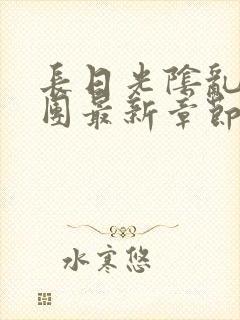 長日光陰亂
團最新章節
水寒悠